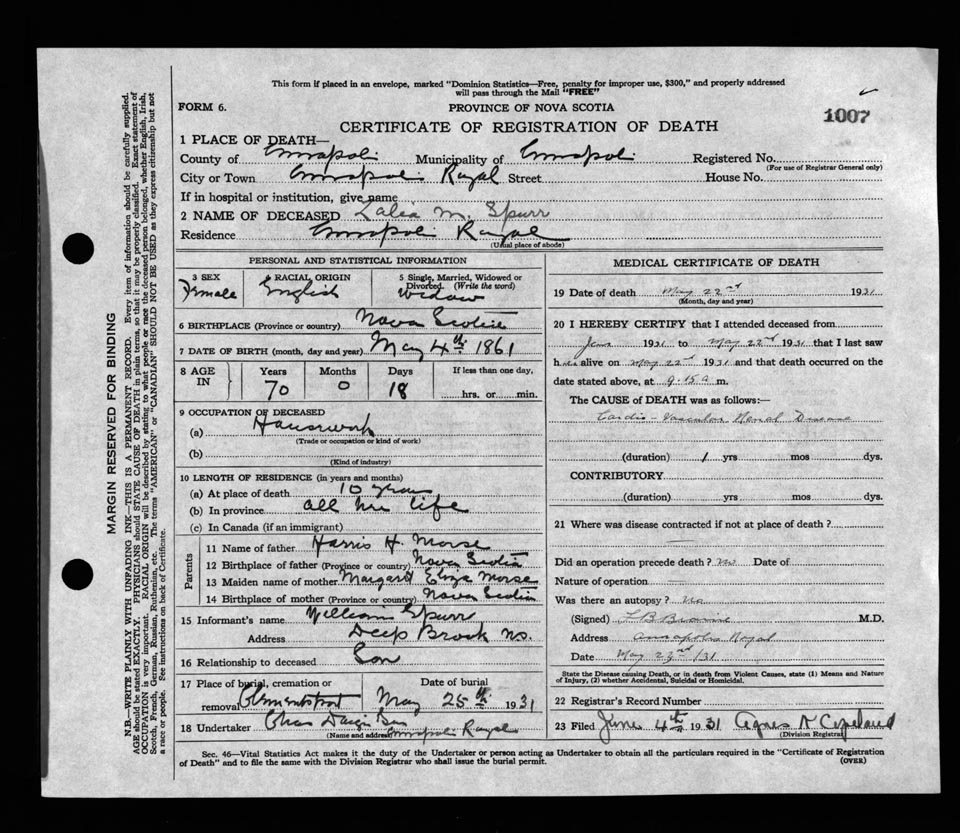 This form if placed in an envelope, marked "Dominion Statistics—Free, penalty for improper use, $300," and properly addressed
will pass through the Mail "FREE"
FORM 6.
PROVINCE OF NOVA SCOTIA
1007
CERTIFICATE OF REGISTRATION OF DEATH
1 PLACE OF DEATH—
County of Annapolis Municipality of Annapolis Registered No.
(For use of Registrar General only)
City or Town Annapolis Royal Street House No.
If in hospital or institution, give name
2 NAME OF DECEASED Zalia M. Spurr
Residence Annapolis Royal
(Usual place of abode)
PERSONAL AND STATISTICAL INFORMATION
3 SEX
Female
4 RACIAL ORIGIN
English
5 Single, Married, Widowed or
Divorced. (Write the word)
Widow
6 BIRTHPLACE (Province or country) Nova Scotia
7 DATE OF BIRTH (month, day and year) May 4th 1861
8 AGE IN
Years Months Days If less than one day,
70 0 18 hrs. or min.
9 OCCUPATION OF DECEASED
(a) Housework
(Trade or occupation or kind of work)
(b)
(Kind of industry)
10 LENGTH OF RESIDENCE (in years and months)
(a) At place of death 10 years
(b) In province all her life
(c) In Canada (if an immigrant)
Parents
11 Name of father Harris H. Morse
12 Birthplace of father (Province or country) Nova Scotia
13 Maiden name of mother Margaret Eliza Morse
14 Birthplace of mother (Province or country) Nova Scotia
15 Informant's name William Spurr
Address Deep Brook NS.
16 Relationship to deceased Son
17 Place of burial, cremation or Date of burial
removal Clementsport May 25th 1931
18 Undertaker Chas
(Name and address) Annapolis Royal
MEDICAL CERTIFICATE OF DEATH
19 Date of death May 22nd 1931
(Month, day and year)
20 I HEREBY CERTIFY that I attended deceased from
1931 to May 22nd 1931 that I last saw
her alive on May 22nd 1931 and that death occurred on the
date stated above, at 9.15 a m.
The CAUSE of DEATH was as follows:—
Cardio-Vascular Renal Disease
(duration) 1 yrs mos dys.
CONTRIBUTORY
(duration) yrs mos dys.
21 Where was disease contracted if not at place of death?
Did an operation precede death? No Date of
Nature of operation
Was there an autopsy? No
(Signed) M.D.
Address Annapolis Royal
Date May 23rd /31
State the Disease causing Death, or in death from Violent Causes, state (1) Means and Nature
of Injury, (2) whether Accidental, Suicidal or Homicidal.
22 Registrar's Record Number
23 Filed June 4th 1931 Agnes N Copeland
(Division Registrar)
Sec. 46—Vital Statistics Act makes it the duty of the Undertaker or person acting as Undertaker to obtain all the particulars required in the "Certificate of Registration
of Death" and to file the same with the Division Registrar who shall issue the burial permit.
(OVER)
MARGIN RESERVED FOR BINDING
N.B.—WRITE PLAINLY WITH UNFADING INK—THIS IS A PERMANENT RECORD. Every item of information should be carefully supplied.
AGE should be stated EXACTLY. PHYSICIANS should STATE CAUSE OF DEATH in plain terms, so that it may be properly classified. Exact statement of
OCCUPATION is very important. RACIAL ORIGIN will be described by stating to what people or race the deceased person belonged, whether English, Irish,
Scotch, French, German, Russian, Ruthenian, etc. The terms "AMERICAN" or "CANADIAN" SHOULD NOT BE USED as they express citizenship but not
a race or people. See instructions on back of Certificate.